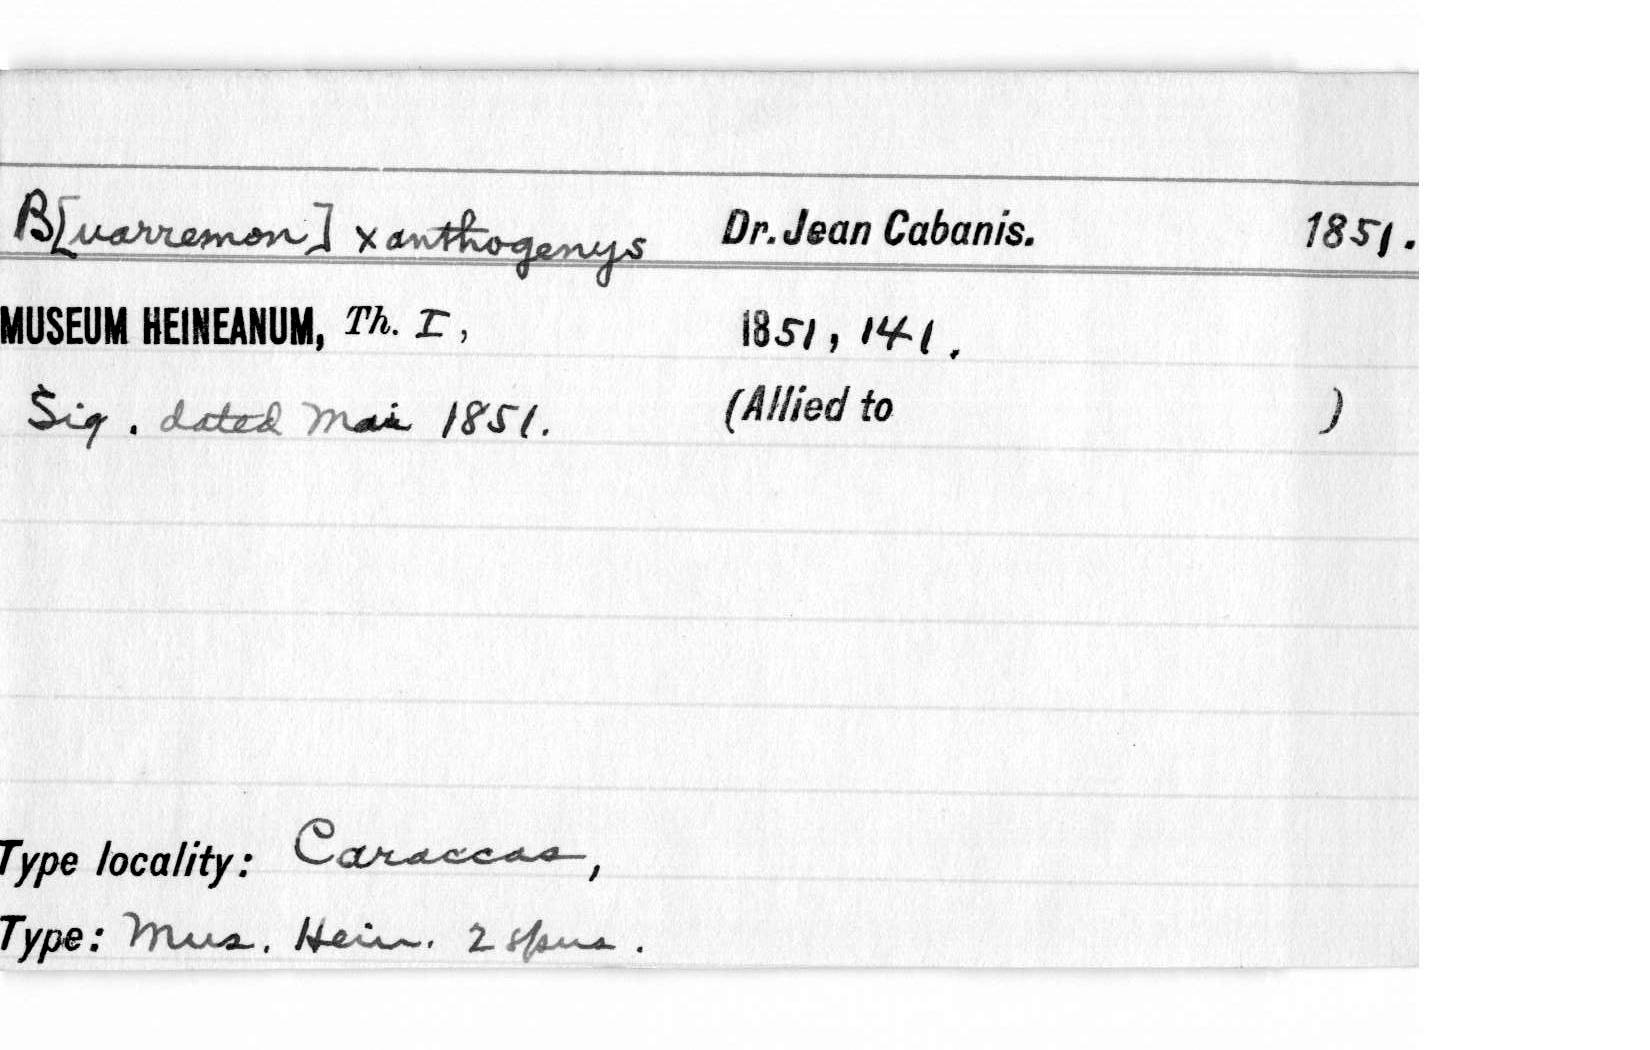 B[uarremon] xanthogenys Dr. Jean Cabanis. 1851.
MUSEUM HEINEANUM, Th. I, 1851, 141.
Sig. dated Mai 1851. (Allied to )
Type locality: Caraccas,
Type: Mus. Hein. 2 spns.